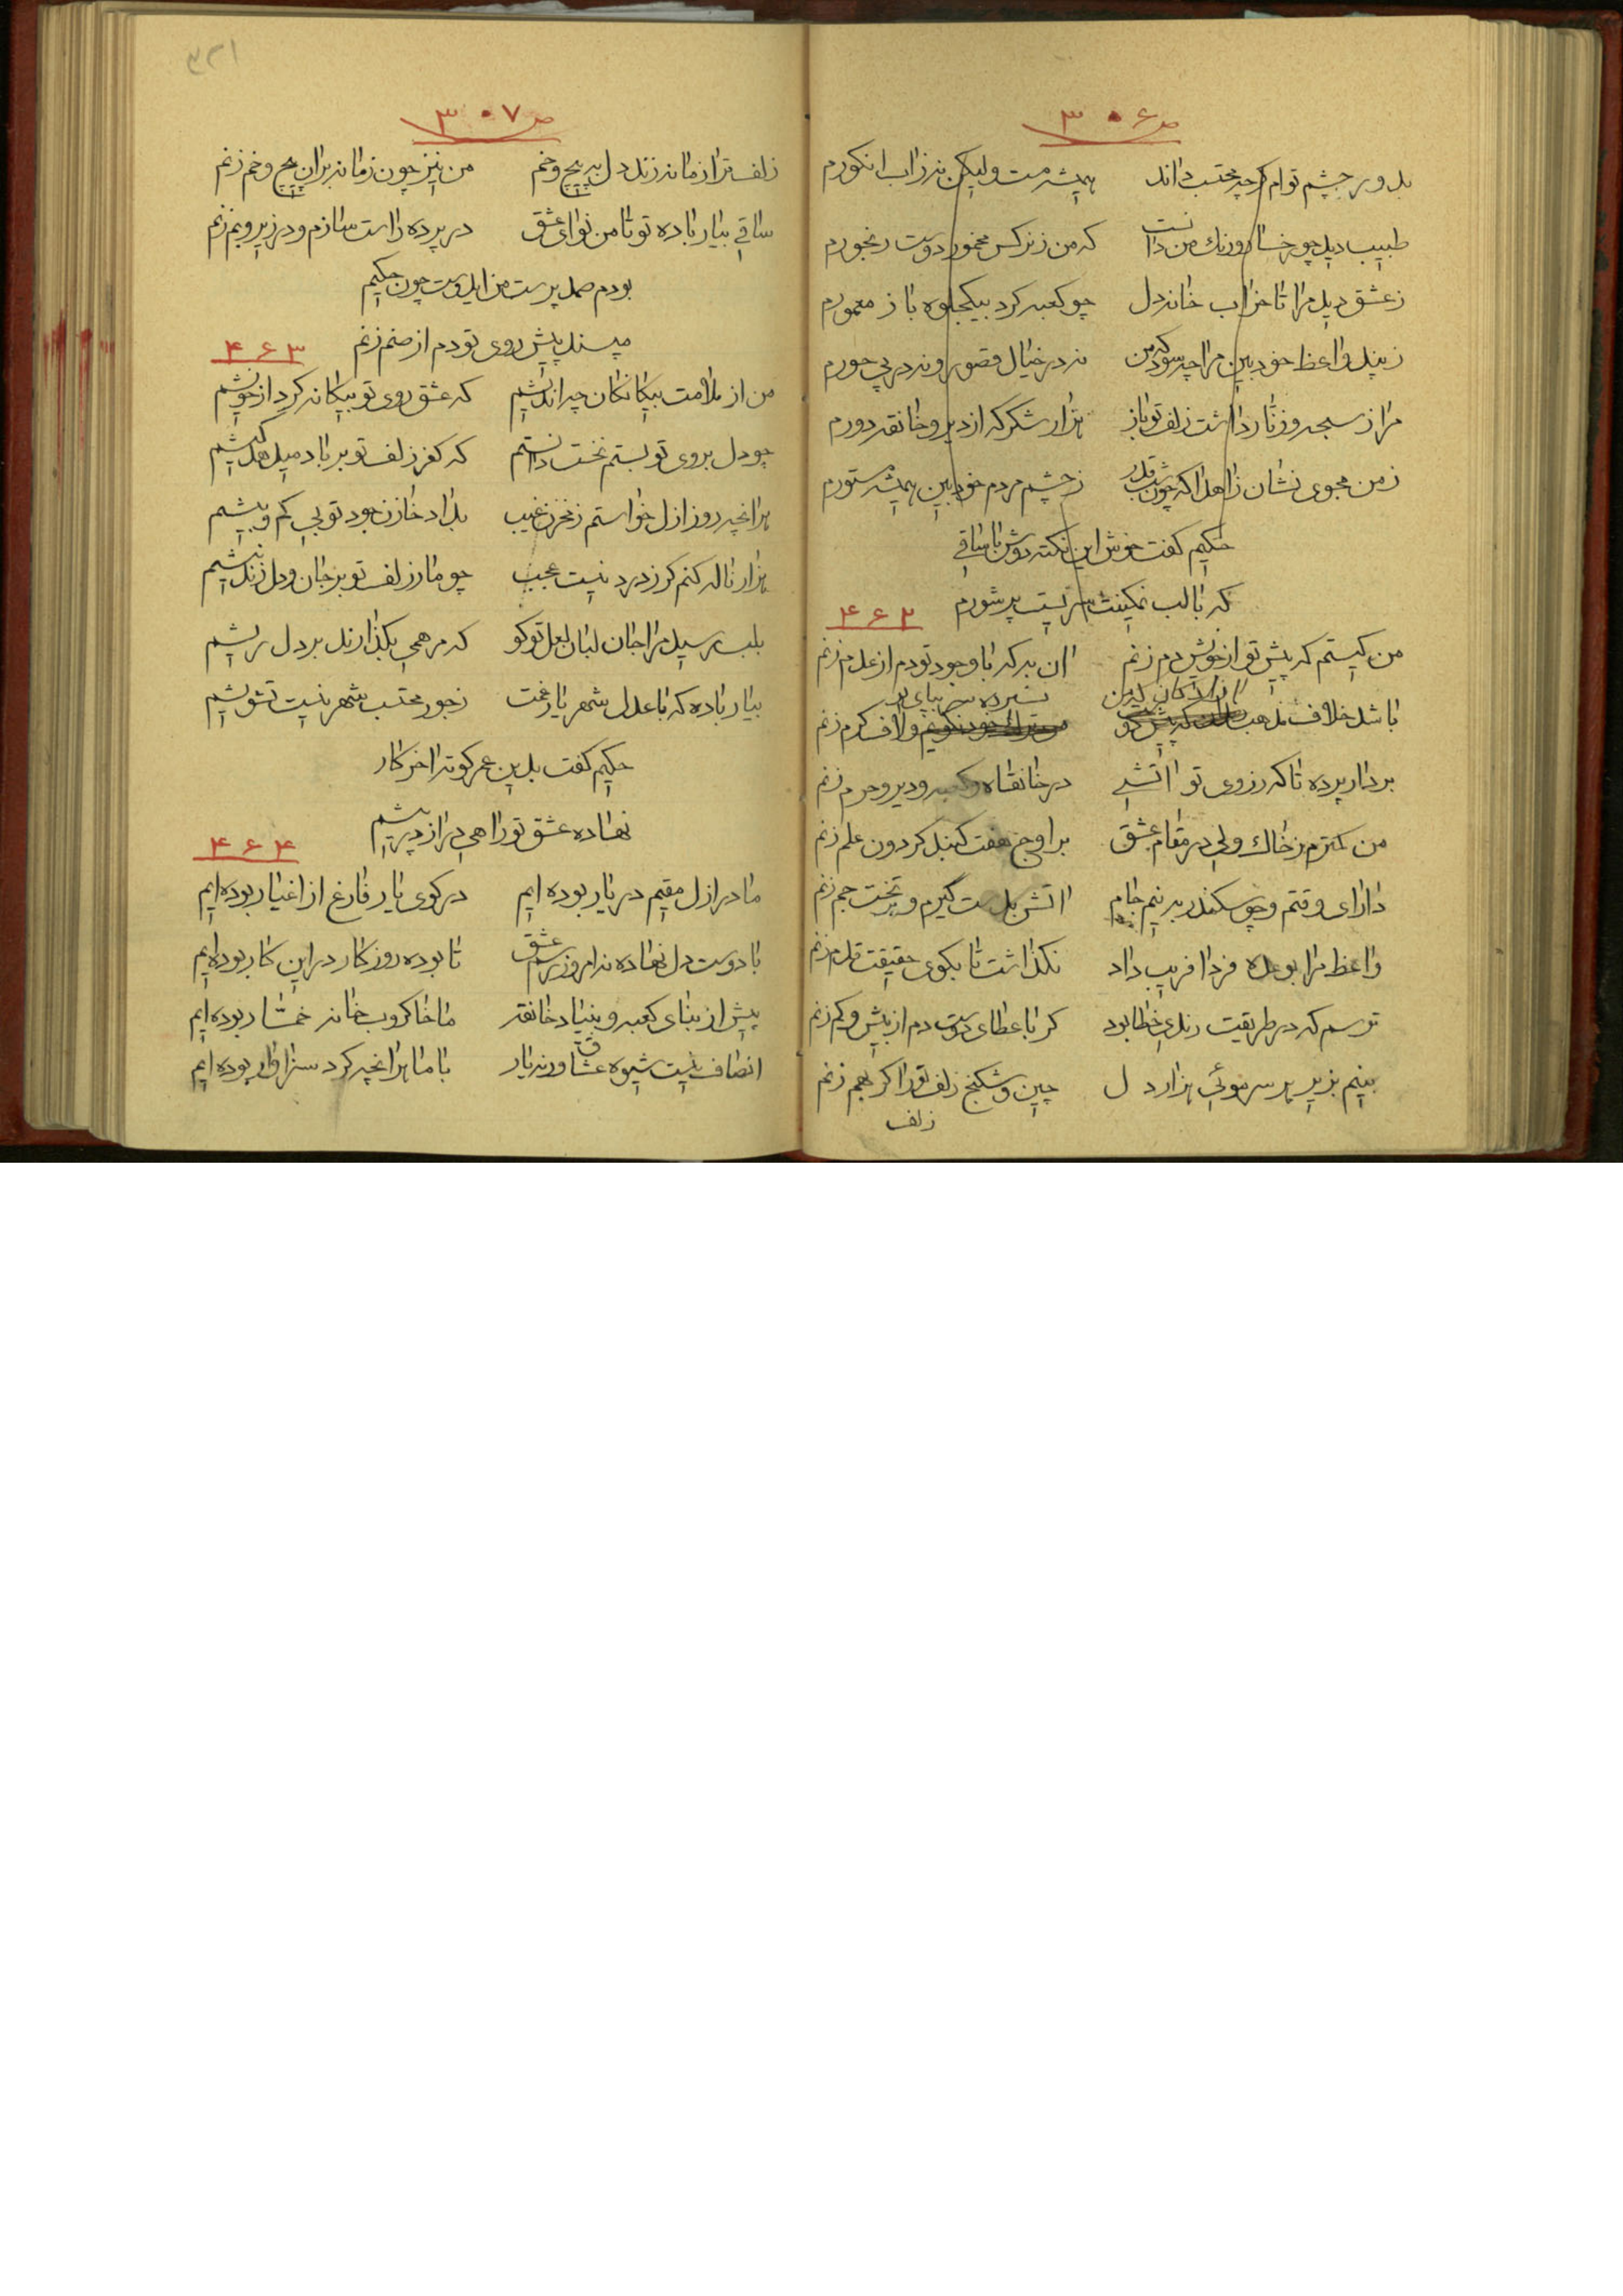 ص ۳۰۶
بدور چشم توام گرچه محتسب داند همیشه مست ولیکن نه زاب انکورم
طبیب دید چو رخسار و رنک من دانست که من ز نرکس مخمور دوست رنجورم
ز عشق دید مرا تا خراب خانه دل چو کعبه کرد بیکجلوه باز معمورم
ز پند واعظ خودبین مرا چه سود که من نه در خیال قصور و نه در پی حورم
مرا ز سبحه و زنار داشت زلف تو باز هزار شکر که از دیر و خانقه دورم
ز من مجوی نشان زاهدا که چون شب قدر ز چشم مردم خودبین همیشه مستورم
حکیم کفت خوش این نکته دوش با ساقی
که با لب نمکینت سریست پر شورم
۴۶۲
من کیستم که پیش تو از خویش دم زنم ان به که با وجود تو دم از عدم زنم
باشد خلاف مذهب
بردار پرده تا که ز روی تو اتشی در خانقاه و کعبه و دیر و حرم زنم
من کمترم ز خاک ولی در مقام عشق بر اوج هفت کنبد کردون علم زنم
دارای وقتم و چو سکندر به نیم جام اتش بدست گیرم و بر تخت جم زنم
واعظ مرا بوعده فردا فریب داد نکذاشت تا بکوی حقیقت قدم زنم
ترسم که در طریقت رندی خطا بود کر با عطای دوست دم از بیش و کم زنم
بینم بزیر هر سر موئی هزار دل چین و شکنج زلف تو را کر بهم زنم
زلف
ص ۳۰۷
زلف ترا زمانه زند دل به پیچ و خم من نیز چون زمانه بران پیچ و خم زنم
ساقی بیار باده تو تا من نوای عشق در پرده راست سازم و در زیر و بم زنم
بودم صمد پرست من ایدوست چون حکیم
مپسند پیش روی تو دم از صنم زنم
۴۶۳
من از ملامت بیکانکان چه اندیشم که عشق روی تو بیکانه کرد از خویشم
چو دل بروی تو بستم نخست دانستم که کفر زلف تو بر باد میدهد کیشم
هرانچه روز ازل خواستم ز مخزن غیب بداد خازن جود تو بی کم و بیشم
هزار ناله کنم کر ز درد نیست عجب چو مار زلف تو بر جان و دل زند نیشم
بلب رسید مرا جان لبان لعل تو کو که مرهمی بکذارند بر دل ریشم
بیار باده که با عدل شهریار غمت ز جور محتسب شهر نیست تشویشم
حکیم کفت بدین عمر کوته اخر کار
نهاده عشق تو راهی دراز در پیشم
۴۶۴
ما در ازل مقیم در یار بوده ایم در کوی یار فارغ از اغیار بوده ایم
با دوست دل نهاده نه امروز بر سر عشق تا بوده روزکار در این کار بوده ایم
پیش از بنای کعبه و بنیاد خانقه ما خاکروب خانه خمّار بوده ایم
انصاف نیست شیوه عشاق ورنه یار با ما هرانچه کرد سزاوار بوده ایم
۳۲۱